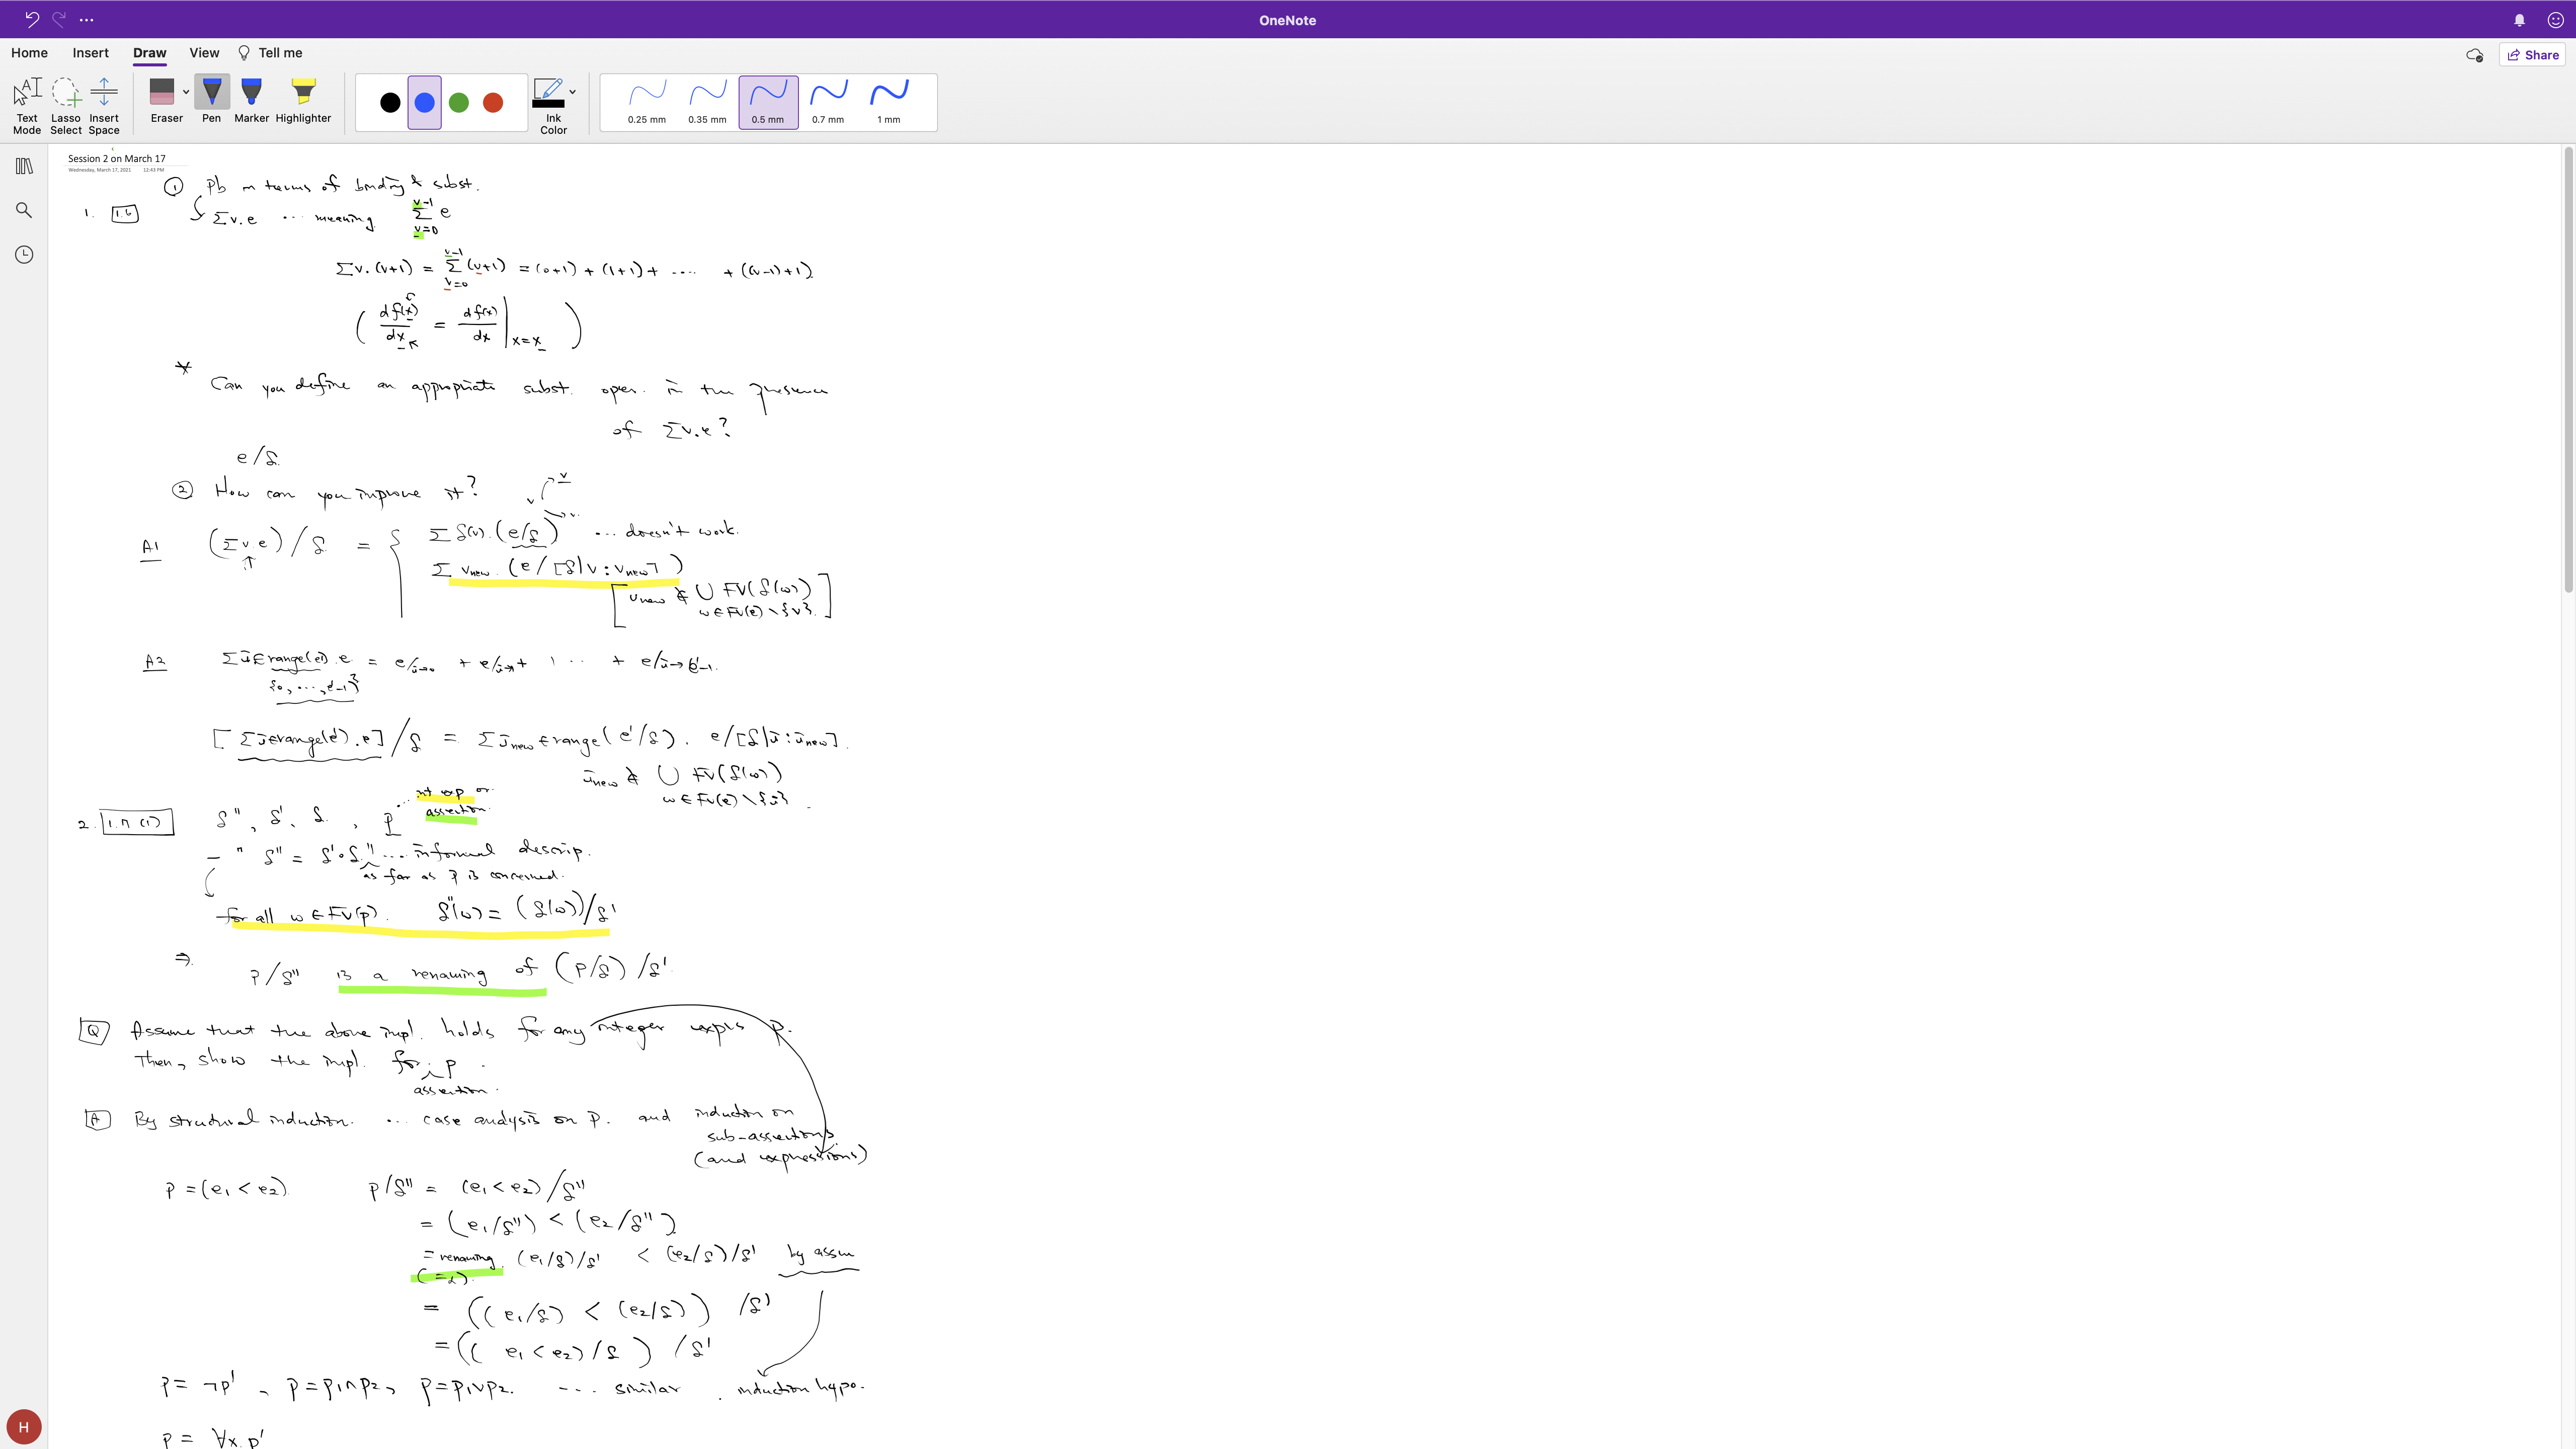 OneNote
Home Insert Draw View Tell me
Share
Text Mode
Lasso Select
Insert Space
Eraser
Pen
Marker
Highlighter
Ink Color
0.25 mm
0.35 mm
0.5 mm
0.7 mm
1 mm
Session 2 on March 17
Wednesday, March 17, 2021 12:43 PM
① Pb in terms of binding & subst.
1. 1.6 Σv.e ... meaning Σ_{v=0}^{v-1} e
Σv.(v+1) = Σ_{v=0}^{v-1} (v+1) = (0+1) + (1+1) + .... + ((v-1)+1)
( df(x)/dx = df(x)/dx |_{x=x} )
* Can you define an appropriate subst. oper. in the presence
of Σv.e?
e/δ
② How can you improve it? v v
A1 (Σv.e)/δ = { Σδ(v).(e/δ) ... doesn't work.
Σ v_new. (e/[δ|v:v_new])
[ v_new ∉ ∪_{w∈FV(e)\{v}} FV(δ(w)) ]
A2 Σi∈range(e').e = e/i→0 + e/i→1 + ... + e/i→e'-1.
{0, ..., e'-1}
[Σi∈range(e').e]/δ = Σi_new∈range(e'/δ). e/[δ|i:i_new].
i_new ∉ ∪_{w∈FV(e)\{i}} FV(δ(w))
2. 1.7 (1) δ'', δ', δ, p ... int exp or assertion.
- "δ'' = δ'∘δ" ... informal descrip.
as far as p is concerned.
for all w∈FV(p). δ''(w) = (δ(w))/δ'
⇒ p/δ'' is a renaming of (p/δ)/δ'
Q Assume that the above impl. holds for any integer exprs p.
Then, show the impl. for p.
assertion.
A By structural induction. ... case analysis on p. and induction on
sub-assertions
(and expressions)
p = (e₁ < e₂). p/δ'' = (e₁ < e₂)/δ''
= (e₁/δ'') < (e₂/δ'')
=renaming (e₁/δ)/δ' < (e₂/δ)/δ' by assum
(=α).
= ((e₁/δ) < (e₂/δ)) /δ'
= ((e₁ < e₂)/δ) /δ'
p = ¬p', p = p₁∧p₂, p = p₁∨p₂. ... similar. induction hypo.
H
p = ∀x.p'